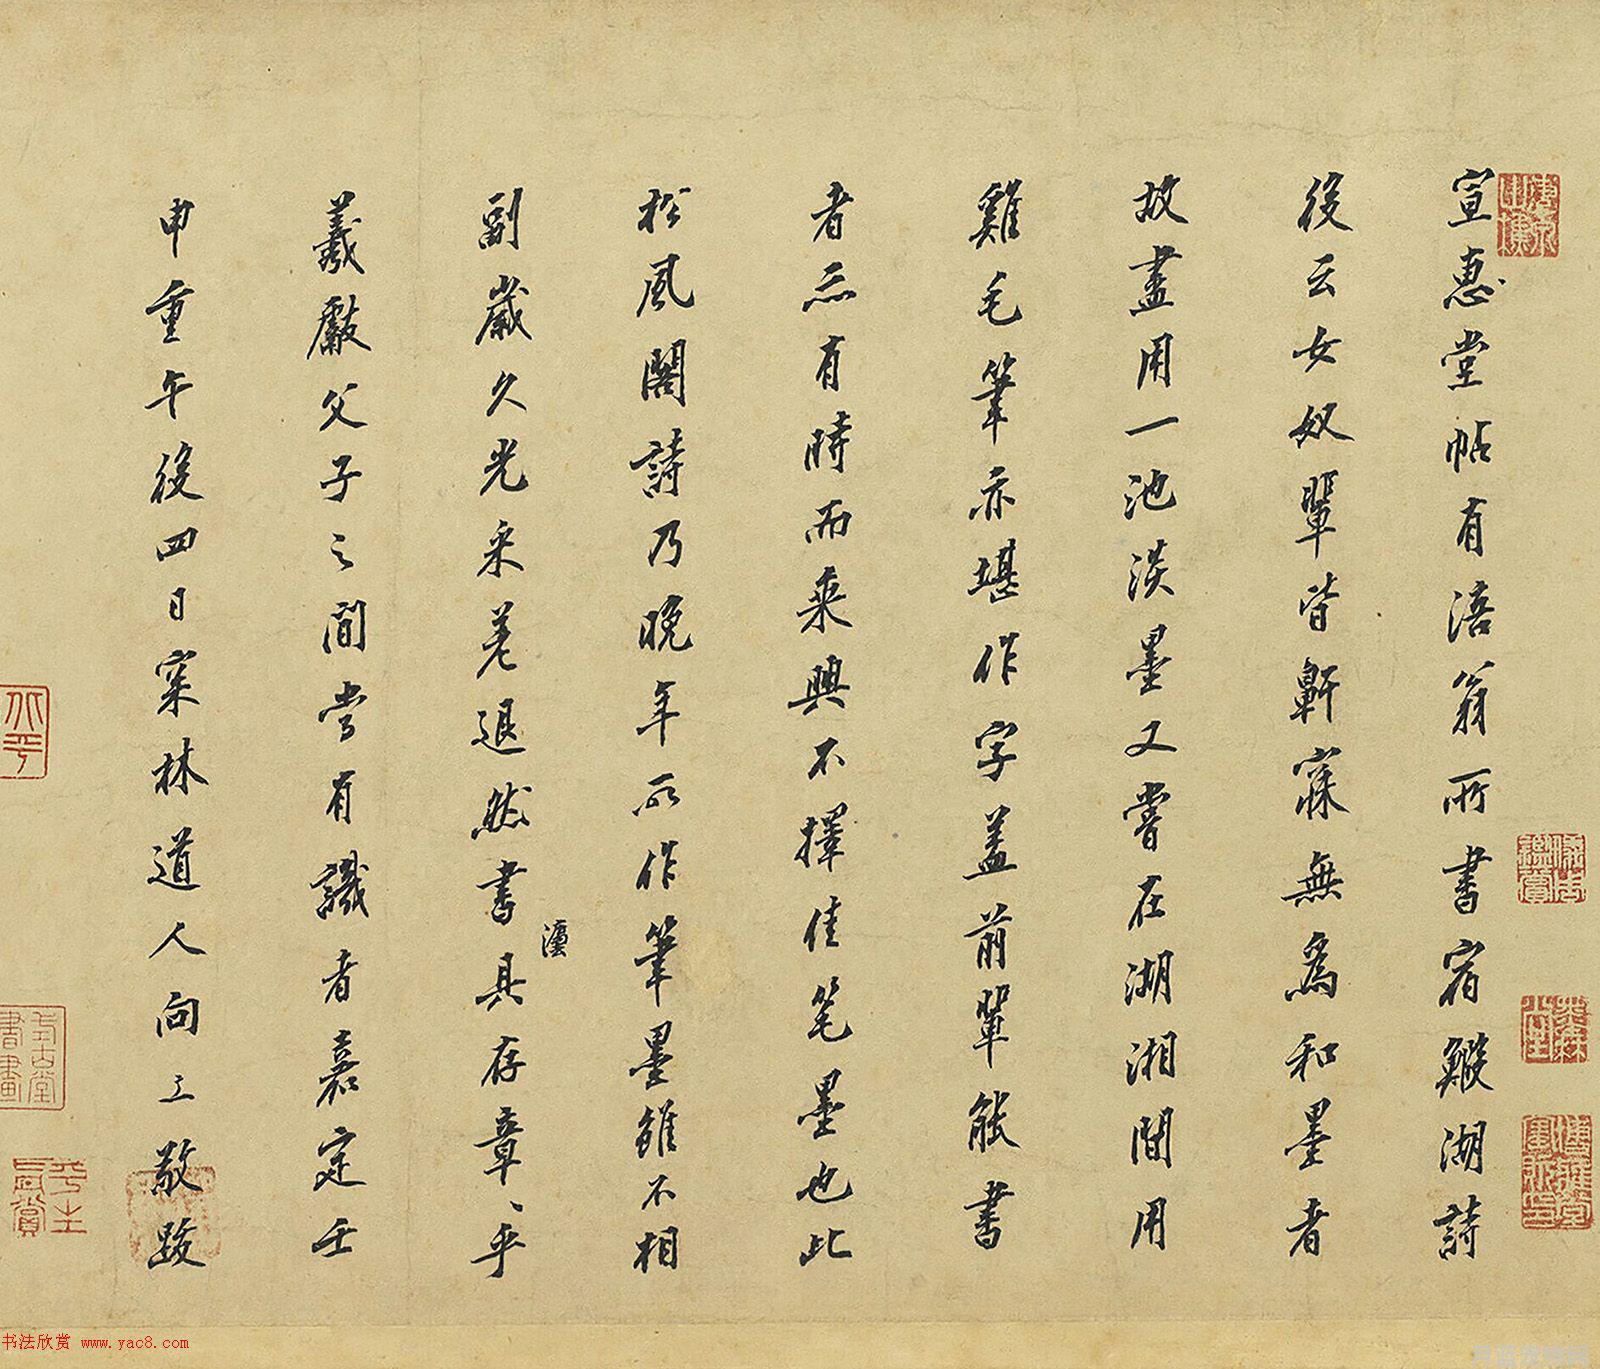 宣惠堂帖有涪翁所書宿鰕湖詩
後云女奴輩皆鼾寐無為和墨者
故盡用一池淡墨又嘗在湖湘間用
雞毛筆亦堪作字蓋前輩能書
者亦有時而乘興不擇佳笔墨也此
松風閣詩乃晚年所作筆墨雖不相
副歲久光采差退然書法具存章、乎
羲獻父子之間當有識者嘉定壬
申重午後四日宷林道人向⺀敬跋
书法欣赏 www.yac8.com